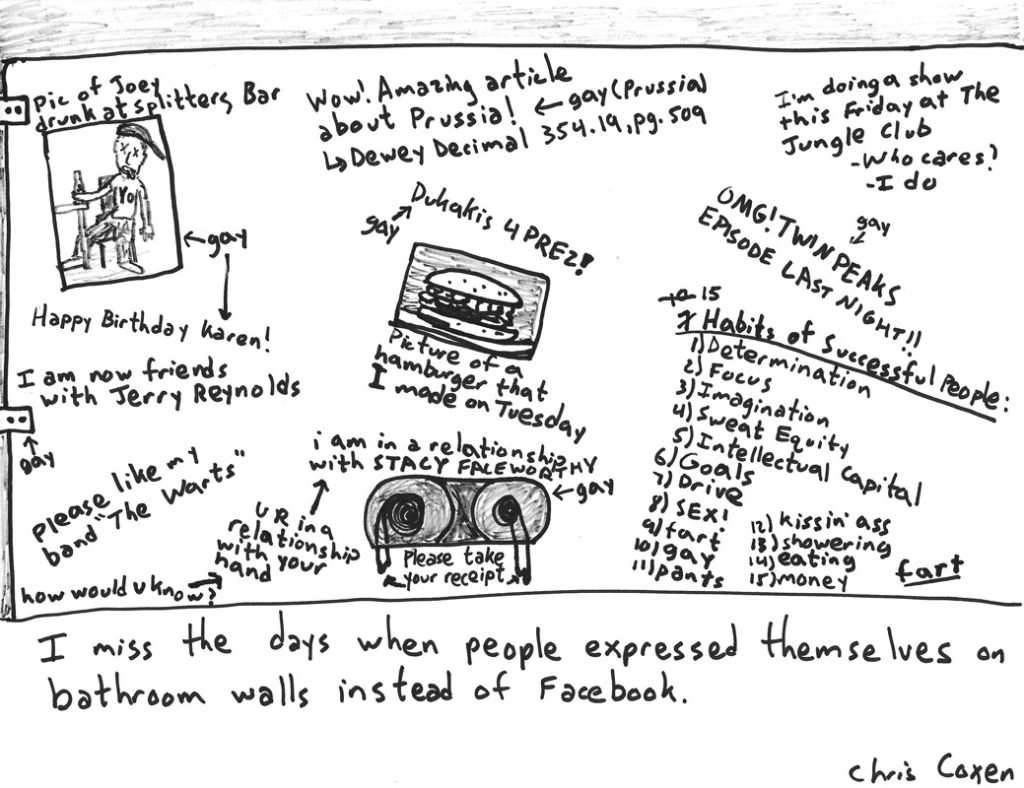 pic of Joey
drunk at splitters Bar
YO
←gay
Happy Birthday Karen!
I am now friends
with Jerry Reynolds
gay
please like my
band "The Warts"
how would u know?
Wow! Amazing article
about Prussia! ←gay (Prussia)
↳Dewey Decimal 354.19, pg. 509
Dukakis 4 PREZ!
gay
Picture of a
hamburger that
I made on Tuesday
i am in a relationship
with STACY FACEWORTHY
←gay
U R in a
relationship
with your
hand
Please take
your receipt
I'm doing a show
this Friday at The
Jungle Club
-Who cares?
-I do
OMG! TWIN PEAKS
EPISODE LAST NIGHT!!
gay
15
7 Habits of Successful People:
1) Determination
2) Focus
3) Imagination
4) Sweat Equity
5) Intellectual Capital
6) Goals
7) Drive
8) SEX!
9) fart
10) gay
11) pants
12) kissin' ass
13) showering
14) eating
15) money
fart
I miss the days when people expressed themselves on
bathroom walls instead of Facebook.
Chris Coxen